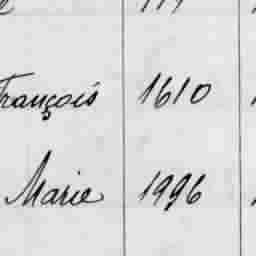 François 1610
Marie 1996